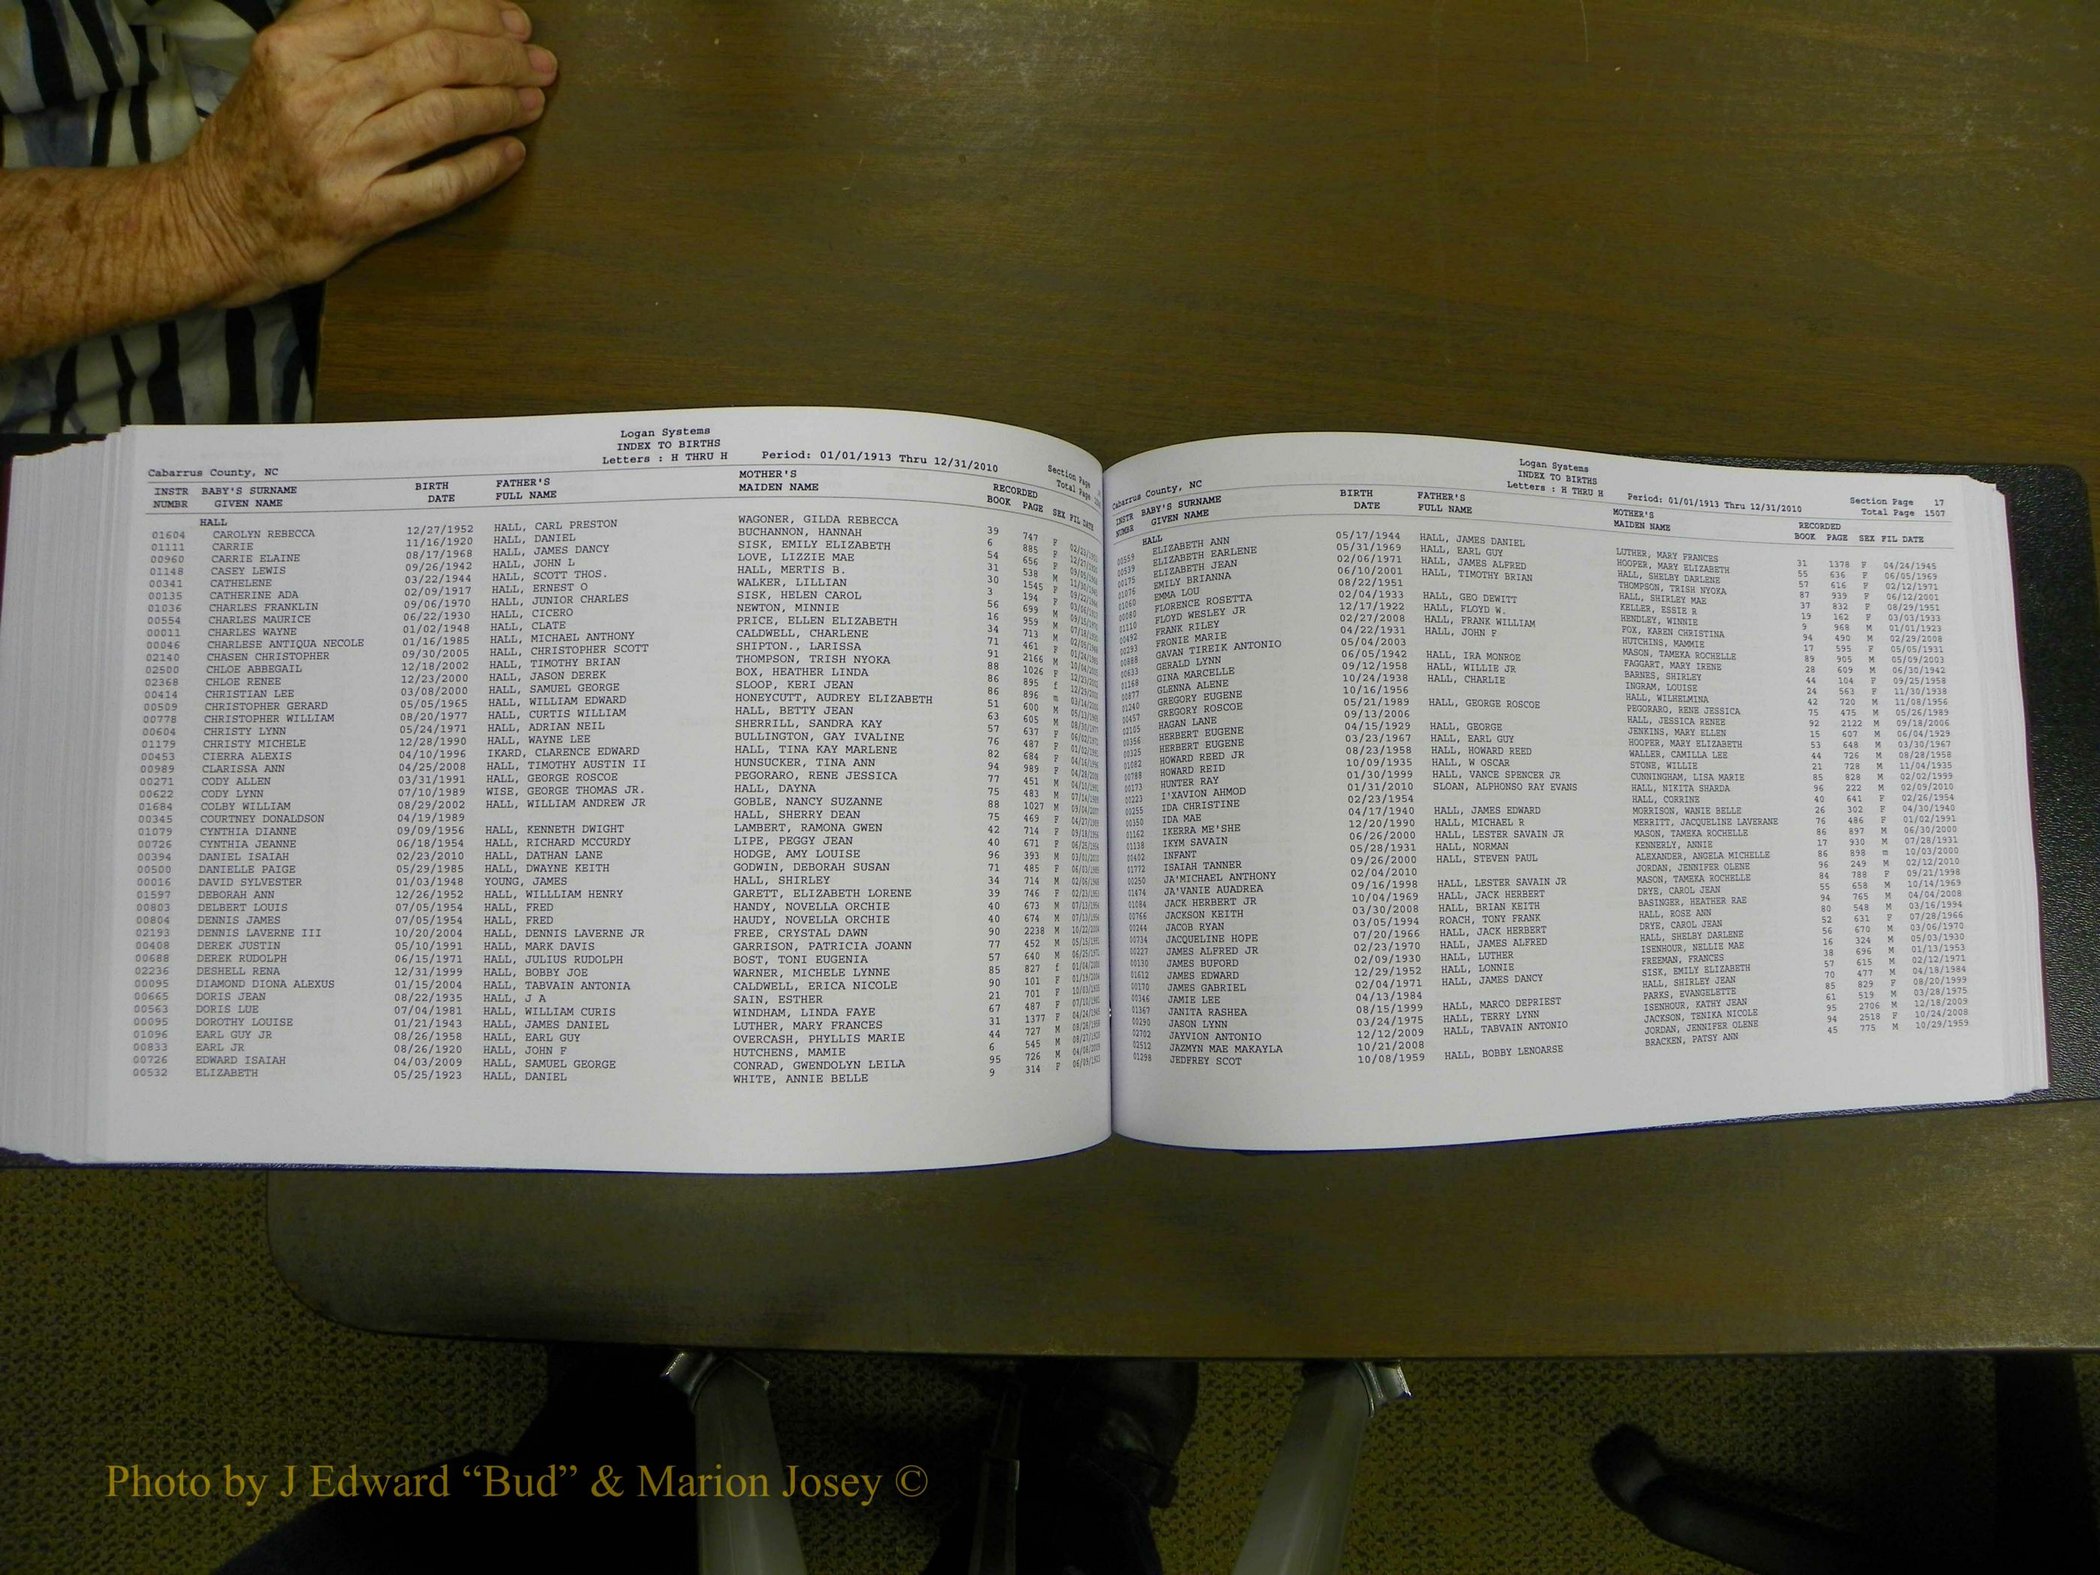 Logan Systems
INDEX TO BIRTHS
Letters : H THRU H Period: 01/01/1913 Thru 12/31/2010
Cabarrus County, NC Section Page
Total Page
INSTR BABY'S SURNAME BIRTH FATHER'S MOTHER'S RECORDED
NUMBR GIVEN NAME DATE FULL NAME MAIDEN NAME BOOK PAGE SEX FIL DATE
HALL
01604 CAROLYN REBECCA 12/27/1952 HALL, CARL PRESTON WAGONER, GILDA REBECCA 39 747 F
01111 CARRIE 11/16/1920 HALL, DANIEL BUCHANNON, HANNAH 6 885 F
00960 CARRIE ELAINE 08/17/1968 HALL, JAMES DANCY SISK, EMILY ELIZABETH 54 656 F
01148 CASEY LEWIS 09/26/1942 HALL, JOHN L LOVE, LIZZIE MAE 31 538 M
00341 CATHELENE 03/22/1944 HALL, SCOTT THOS. HALL, MERTIS B. 30 1545 F
00135 CATHERINE ADA 02/09/1917 HALL, ERNEST O WALKER, LILLIAN 3 194 F
01036 CHARLES FRANKLIN 09/06/1970 HALL, JUNIOR CHARLES SISK, HELEN CAROL 56 699 M
00554 CHARLES MAURICE 06/22/1930 HALL, CICERO NEWTON, MINNIE 16 959 M
00011 CHARLES WAYNE 01/02/1948 HALL, CLATE PRICE, ELLEN ELIZABETH 34 713 M
00046 CHARLESE ANTIQUA NECOLE 01/16/1985 HALL, MICHAEL ANTHONY CALDWELL, CHARLENE 71 461 F
02140 CHASEN CHRISTOPHER 09/30/2005 HALL, CHRISTOPHER SCOTT SHIPTON., LARISSA 91 2166 M
02500 CHLOE ABBEGAIL 12/18/2002 HALL, TIMOTHY BRIAN THOMPSON, TRISH NYOKA 88 1026 F
02368 CHLOE RENEE 12/23/2000 HALL, JASON DEREK BOX, HEATHER LINDA 86 895 f
00414 CHRISTIAN LEE 03/08/2000 HALL, SAMUEL GEORGE SLOOP, KERI JEAN 86 896 m
00509 CHRISTOPHER GERARD 05/05/1965 HALL, WILLIAM EDWARD HONEYCUTT, AUDREY ELIZABETH 51 600 M
00778 CHRISTOPHER WILLIAM 08/20/1977 HALL, CURTIS WILLIAM HALL, BETTY JEAN 63 605 M
00604 CHRISTY LYNN 05/24/1971 HALL, ADRIAN NEIL SHERRILL, SANDRA KAY 57 637 F
01179 CHRISTY MICHELE 12/28/1990 HALL, WAYNE LEE BULLINGTON, GAY IVALINE 76 487 F
00453 CIERRA ALEXIS 04/10/1996 IKARD, CLARENCE EDWARD HALL, TINA KAY MARLENE 82 684 F
00989 CLARISSA ANN 04/25/2008 HALL, TIMOTHY AUSTIN II HUNSUCKER, TINA ANN 94 989 F
00271 CODY ALLEN 03/31/1991 HALL, GEORGE ROSCOE PEGORARO, RENE JESSICA 77 451 M
00622 CODY LYNN 07/10/1989 WISE, GEORGE THOMAS JR. HALL, DAYNA 75 483 M
01684 COLBY WILLIAM 08/29/2002 HALL, WILLIAM ANDREW JR GOBLE, NANCY SUZANNE 88 1027 M
00345 COURTNEY DONALDSON 04/19/1989 HALL, SHERRY DEAN 75 469 F
01079 CYNTHIA DIANNE 09/09/1956 HALL, KENNETH DWIGHT LAMBERT, RAMONA GWEN 42 714 F
00726 CYNTHIA JEANNE 06/18/1954 HALL, RICHARD MCCURDY LIPE, PEGGY JEAN 40 671 F
00394 DANIEL ISAIAH 02/23/2010 HALL, DATHAN LANE HODGE, AMY LOUISE 96 393 M
00500 DANIELLE PAIGE 05/29/1985 HALL, DWAYNE KEITH GODWIN, DEBORAH SUSAN 71 485 F
00016 DAVID SYLVESTER 01/03/1948 YOUNG, JAMES HALL, SHIRLEY 34 714 M
01597 DEBORAH ANN 12/26/1952 HALL, WILLLIAM HENRY GARETT, ELIZABETH LORENE 39 746 F
00803 DELBERT LOUIS 07/05/1954 HALL, FRED HANDY, NOVELLA ORCHIE 40 673 M 07/13/1954
00804 DENNIS JAMES 07/05/1954 HALL, FRED HAUDY, NOVELLA ORCHIE 40 674 M 07/13/1954
02193 DENNIS LAVERNE III 10/20/2004 HALL, DENNIS LAVERNE JR FREE, CRYSTAL DAWN 90 2238 M 10/22/2004
00408 DEREK JUSTIN 05/10/1991 HALL, MARK DAVIS GARRISON, PATRICIA JOANN 77 452 M 05/15/1991
00688 DEREK RUDOLPH 06/15/1971 HALL, JULIUS RUDOLPH BOST, TONI EUGENIA 57 640 M 06/25/1971
02236 DESHELL RENA 12/31/1999 HALL, BOBBY JOE WARNER, MICHELE LYNNE 85 827 f
00095 DIAMOND DIONA ALEXUS 01/15/2004 HALL, TABVAIN ANTONIA CALDWELL, ERICA NICOLE 90 101 F 01/19/2004
00665 DORIS JEAN 08/22/1935 HALL, J A SAIN, ESTHER 21 701 F 10/03/1935
00563 DORIS LUE 07/04/1981 HALL, WILLIAM CURIS WINDHAM, LINDA FAYE 67 487 F 07/10/1981
00095 DOROTHY LOUISE 01/21/1943 HALL, JAMES DANIEL LUTHER, MARY FRANCES 31 1377 F 04/24/1945
01096 EARL GUY JR 08/26/1958 HALL, EARL GUY OVERCASH, PHYLLIS MARIE 44 727 M 08/28/1958
00833 EARL JR 08/26/1920 HALL, JOHN F HUTCHENS, MAMIE 6 545 M 08/27/1920
00726 EDWARD ISAIAH 04/03/2009 HALL, SAMUEL GEORGE CONRAD, GWENDOLYN LEILA 95 726 M 04/08/2009
00532 ELIZABETH 05/25/1923 HALL, DANIEL WHITE, ANNIE BELLE 9 314 F 06/09/1923
Logan Systems
INDEX TO BIRTHS
Letters : H THRU H Period: 01/01/1913 Thru 12/31/2010
Cabarrus County, NC Section Page 17
Total Page 1507
INSTR BABY'S SURNAME BIRTH FATHER'S MOTHER'S RECORDED
NUMBR GIVEN NAME DATE FULL NAME MAIDEN NAME BOOK PAGE SEX FIL DATE
HALL
00559 ELIZABETH ANN 05/17/1944 HALL, JAMES DANIEL LUTHER, MARY FRANCES 31 1378 F 04/24/1945
00539 ELIZABETH EARLENE 05/31/1969 HALL, EARL GUY HOOPER, MARY ELIZABETH 55 636 F 06/05/1969
00175 ELIZABETH JEAN 02/06/1971 HALL, JAMES ALFRED HALL, SHELBY DARLENE 57 616 F 02/12/1971
01076 EMILY BRIANNA 06/10/2001 HALL, TIMOTHY BRIAN THOMPSON, TRISH NYOKA 87 939 F 06/12/2001
01060 EMMA LOU 08/22/1951 HALL, SHIRLEY MAE 37 832 F 08/29/1951
00080 FLORENCE ROSETTA 02/04/1933 HALL, GEO DEWITT KELLER, ESSIE R 19 162 F 03/03/1933
01110 FLOYD WESLEY JR 12/17/1922 HALL, FLOYD W. HENDLEY, WINNIE 9 968 M 01/01/1923
00492 FRANK RILEY 02/27/2008 HALL, FRANK WILLIAM FOX, KAREN CHRISTINA 94 490 M 02/29/2008
00293 FRONIE MARIE 04/22/1931 HALL, JOHN F HUTCHINS, MAMMIE 17 595 F 05/05/1931
00888 GAVAN TIREIK ANTONIO 05/04/2003 MASON, TAMEKA ROCHELLE 89 905 M 05/09/2003
00633 GERALD LYNN 06/05/1942 HALL, IRA MONROE FAGGART, MARY IRENE 28 609 M 06/30/1942
01168 GINA MARCELLE 09/12/1958 HALL, WILLIE JR BARNES, SHIRLEY 44 104 F 09/25/1958
00877 GLENNA ALENE 10/24/1938 HALL, CHARLIE INGRAM, LOUISE 24 563 F 11/30/1938
01240 GREGORY EUGENE 10/16/1956 HALL, WILHELMINA 42 720 M 11/08/1956
00457 GREGORY ROSCOE 05/21/1989 HALL, GEORGE ROSCOE PEGORARO, RENE JESSICA 75 475 M 05/26/1989
02105 HAGAN LANE 09/13/2006 HALL, JESSICA RENEE 92 2122 M 09/18/2006
00356 HERBERT EUGENE 04/15/1929 HALL, GEORGE JENKINS, MARY ELLEN 15 607 M 06/04/1929
00325 HERBERT EUGENE 03/23/1967 HALL, EARL GUY HOOPER, MARY ELIZABETH 53 648 M 03/30/1967
01082 HOWARD REED JR 08/23/1958 HALL, HOWARD REED WALLER, CAMILLA LEE 44 726 M 08/28/1958
00788 HOWARD REID 10/09/1935 HALL, W OSCAR STONE, WILLIE 21 728 M 11/04/1935
00173 HUNTER RAY 01/30/1999 HALL, VANCE SPENCER JR CUNNINGHAM, LISA MARIE 85 828 M 02/02/1999
00223 I'XAVION AHMOD 01/31/2010 SLOAN, ALPHONSO RAY EVANS HALL, NIKITA SHARDA 96 222 M 02/09/2010
00255 IDA CHRISTINE 02/23/1954 HALL, CORRINE 40 641 F 02/26/1954
00350 IDA MAE 04/17/1940 HALL, JAMES EDWARD MORRISON, WANIE BELLE 26 302 F 04/30/1940
01162 IKERRA ME'SHE 12/20/1990 HALL, MICHAEL R MERRITT, JACQUELINE LAVERANE 76 486 F 01/02/1991
01138 IKYM SAVAIN 06/26/2000 HALL, LESTER SAVAIN JR MASON, TAMEKA ROCHELLE 86 897 M 06/30/2000
00402 INFANT 05/28/1931 HALL, NORMAN KENNERLY, ANNIE 17 930 M 07/28/1931
01772 ISAIAH TANNER 09/26/2000 HALL, STEVEN PAUL ALEXANDER, ANGELA MICHELLE 86 898 m 10/03/2000
00250 JA'MICHAEL ANTHONY 02/04/2010 JORDAN, JENNIFER OLENE 96 249 M 02/12/2010
01474 JA'VANIE AUADREA 09/16/1998 HALL, LESTER SAVAIN JR MASON, TAMEKA ROCHELLE 84 788 F 09/21/1998
01084 JACK HERBERT JR 10/04/1969 HALL, JACK HERBERT DRYE, CAROL JEAN 55 658 M 10/14/1969
00766 JACKSON KEITH 03/30/2008 HALL, BRIAN KEITH BASINGER, HEATHER RAE 94 765 M 04/04/2008
00244 JACOB RYAN 03/05/1994 ROACH, TONY FRANK HALL, ROSE ANN 80 548 M 03/16/1994
00734 JACQUELINE HOPE 07/20/1966 HALL, JACK HERBERT DRYE, CAROL JEAN 52 631 F 07/28/1966
00227 JAMES ALFRED JR 02/23/1970 HALL, JAMES ALFRED HALL, SHELBY DARLENE 56 670 M 03/06/1970
00130 JAMES BUFORD 02/09/1930 HALL, LUTHER ISENHOUR, NELLIE MAE 16 324 M 05/03/1930
01612 JAMES EDWARD 12/29/1952 HALL, LONNIE FREEMAN, FRANCES 38 696 M 01/13/1953
00170 JAMES GABRIEL 02/04/1971 HALL, JAMES DANCY SISK, EMILY ELIZABETH 57 615 M 02/12/1971
00346 JAMIE LEE 04/13/1984 HALL, SHIRLEY JEAN 70 477 M 04/18/1984
01367 JANITA RASHEA 08/15/1999 HALL, MARCO DEPRIEST PARKS, EVANGELETTE 85 829 F 08/20/1999
00290 JASON LYNN 03/24/1975 HALL, TERRY LYNN ISENHOUR, KATHY JEAN 61 519 M 03/28/1975
02702 JAYVION ANTONIO 12/12/2009 HALL, TABVAIN ANTONIO JACKSON, TENIKA NICOLE 95 2706 M 12/18/2009
02512 JAZMYN MAE MAKAYLA 10/21/2008 JORDAN, JENNIFER OLENE 94 2518 F 10/24/2008
01298 JEDFREY SCOT 10/08/1959 HALL, BOBBY LENOARSE BRACKEN, PATSY ANN 45 775 M 10/29/1959
Photo by J Edward “Bud” & Marion Josey ©